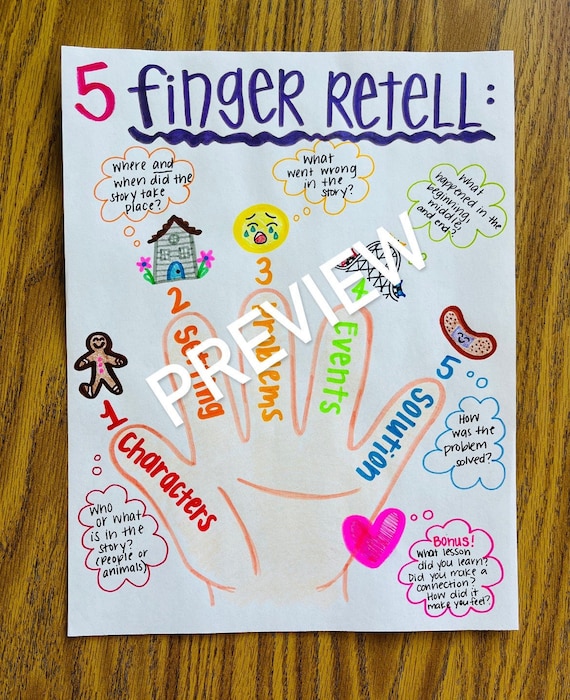 5 finger Retell:
where and
when did the
story take
place?
What
went wrong
in the
story?
What
happened in the
beginning,
middle,
and end?
1
Characters
2
Setting
3
Problems
4
Events
5
Solution
PREVIEW
Who
or what
is in the
story?
(people or
animals)
How
was the
problem
solved?
Bonus!
What lesson
did you learn?
Did you make a
connection?
How did it
make you feel?